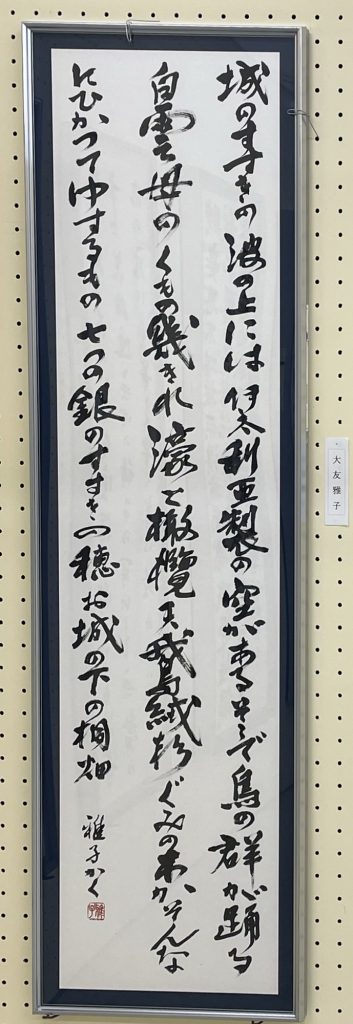 城のすすきの波の上には伊太利亜製の空があるそこで烏の群が踊る
白雲母のくもの幾きれ濠と橄欖天鵞絨杉ぐみの木かそんな
にひかつてゆするもの七つの銀のすすきの穂お城の下の桐畑
雅子かく
大友雅子